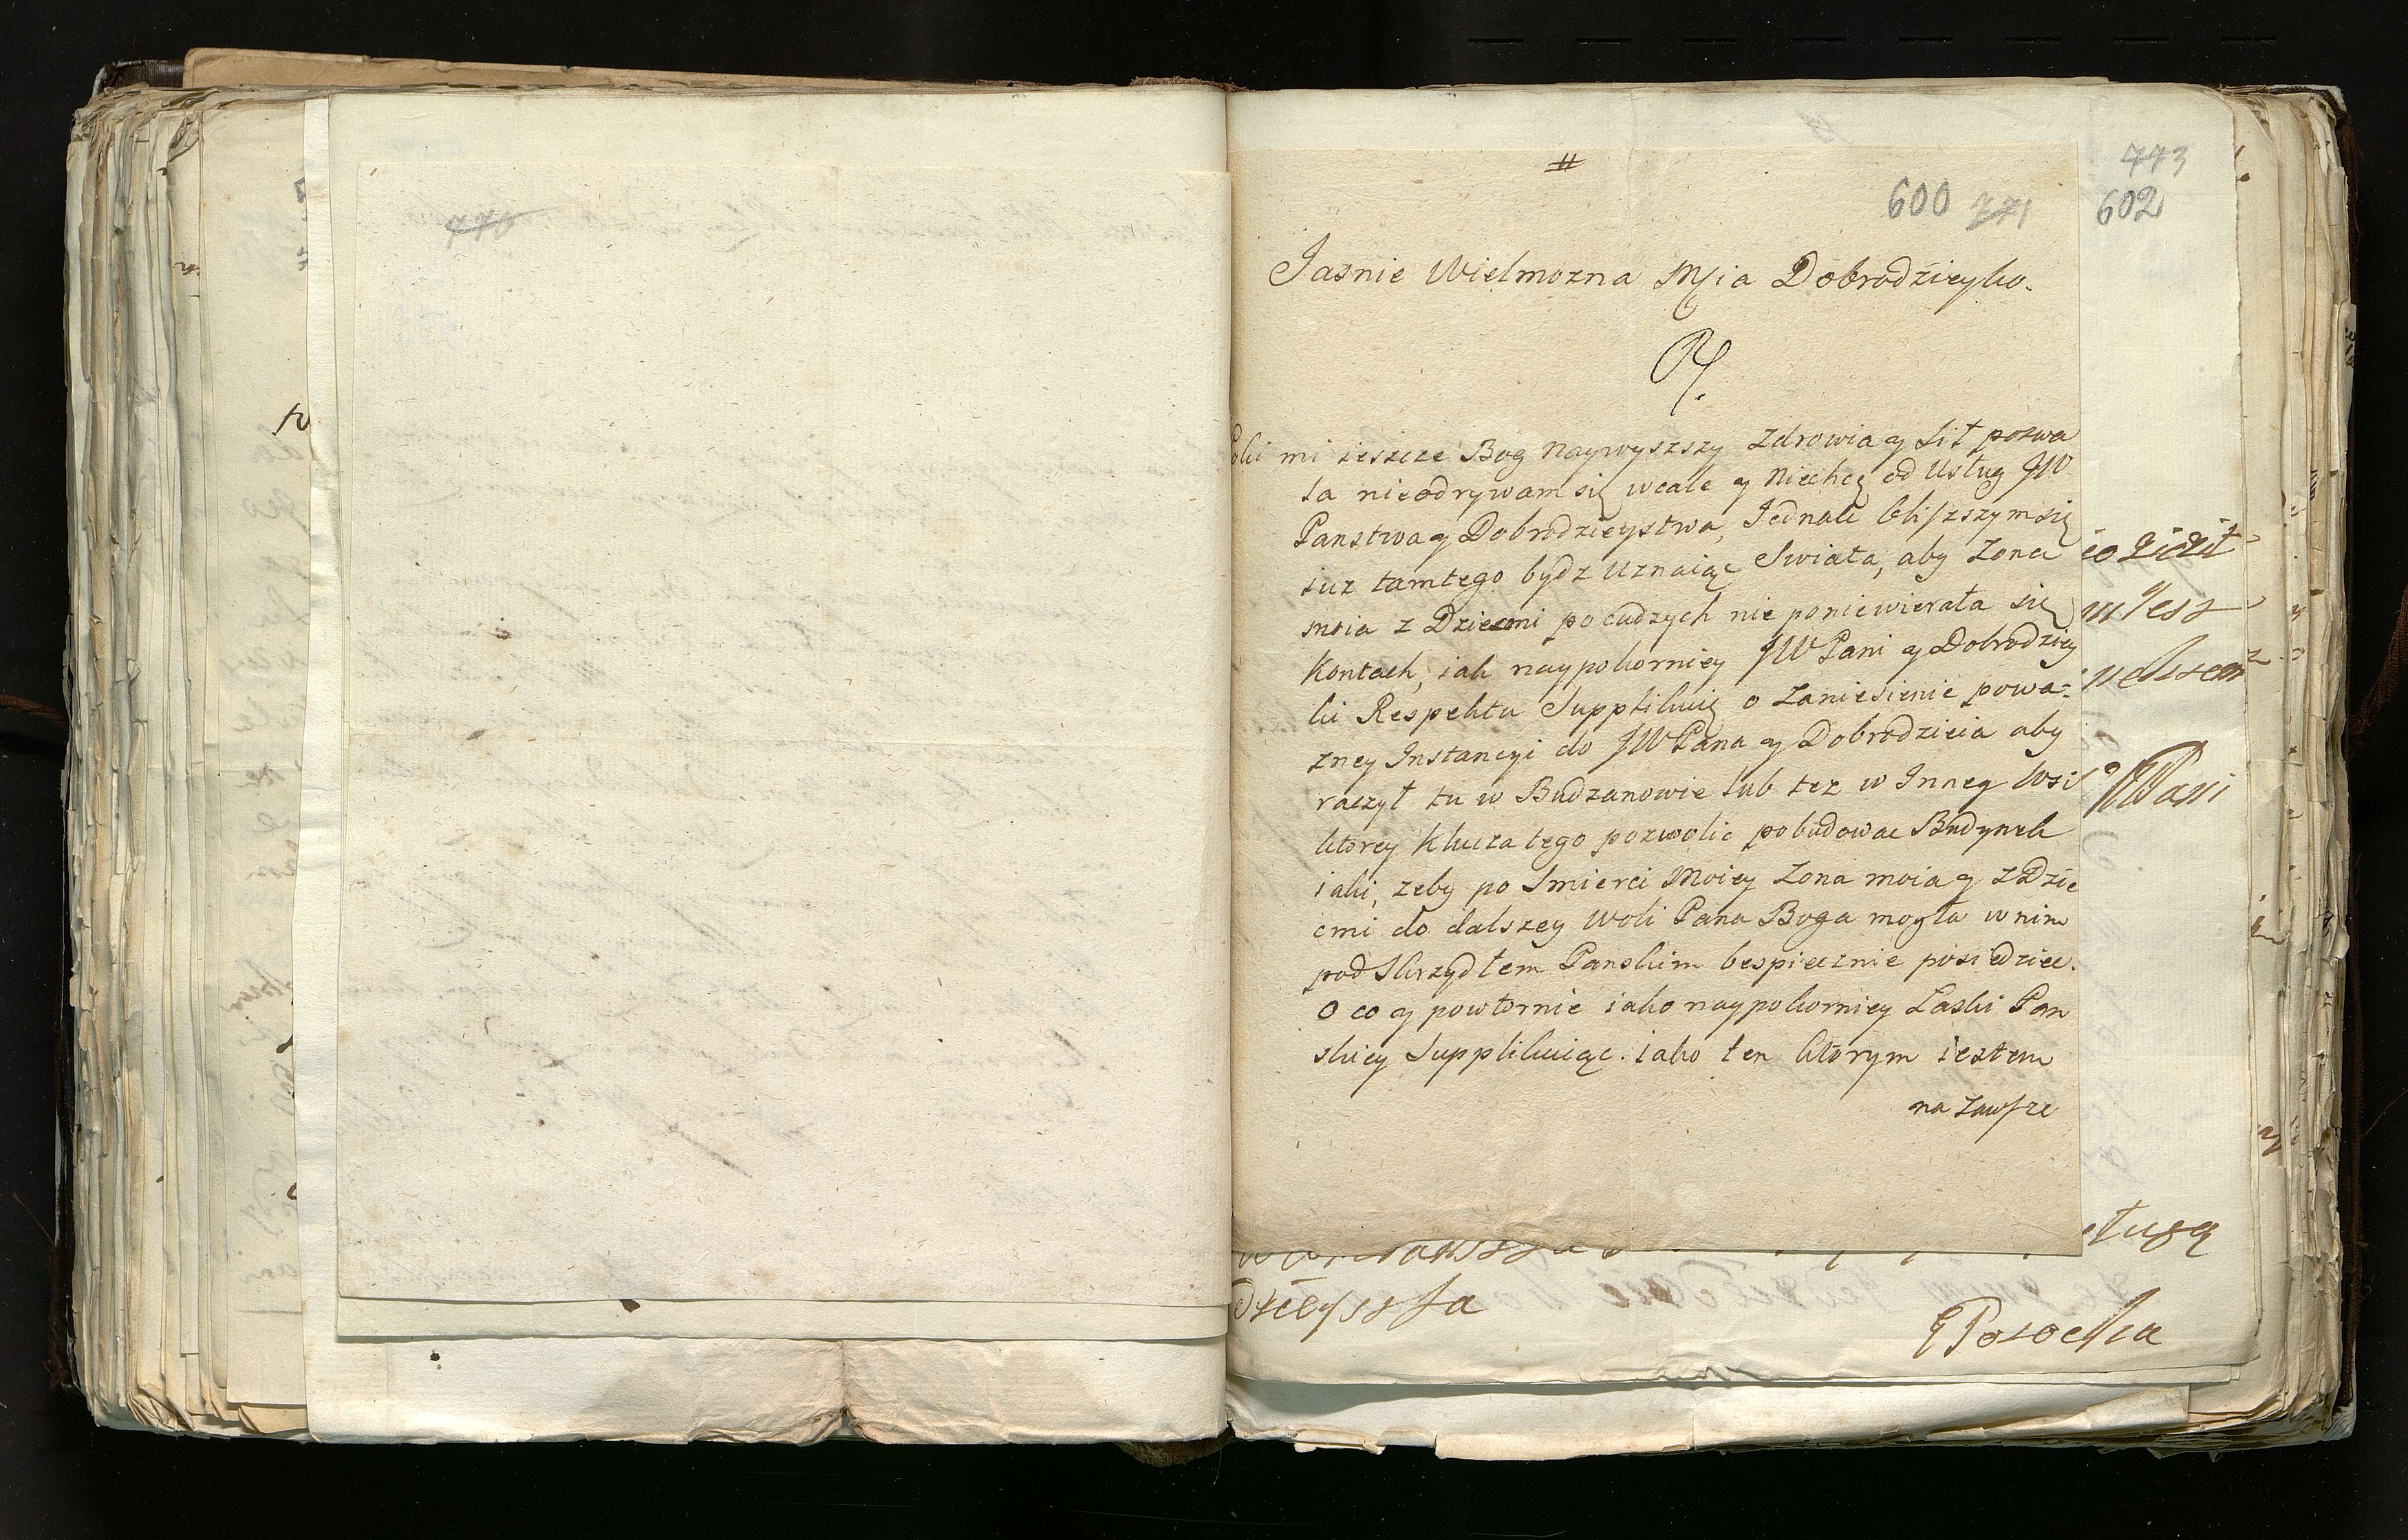 770
#
600 771
773
602
Jasnie Wielmozna Mςia Dobrodzieyko.
Poki mi ieszcze Bog naywyszszy Zdrowia y Sił pozwa
la nieodrywam się wcale y Niechcę od Usług JW
Panstwa y Dobrodzieystwa, Jednak bliszszym się
iuz tamtego bydz Uznaiąc Swiata, aby Zona
moia z Dziecmi po cudzych nie poniewierała się
Kontach, iak naypokorniey JWPani y Dobrodziey
ki Respektu Supplikuię o Zaniesienie powa=
zney Instancyi do JWPana y Dobrodzieia aby
raczył tu w Budzanowie lub tez w Inney Wsi
ktorey Klucza tego pozwolic pobudowac Budynek
iaki, zeby po Smierci Moiey Zona moia y z Dzie
cmi do dalszey Woli Pana Boga mogła w nim
pod Skrzydłem Panskim bespiecznie posiedziec.
O co y powtornie iako naypokorniey Laski Pan
skiey Supplikuiąc. iako ten ktorym iestem
na Zawsze
JWPani
sługą
GPotocka